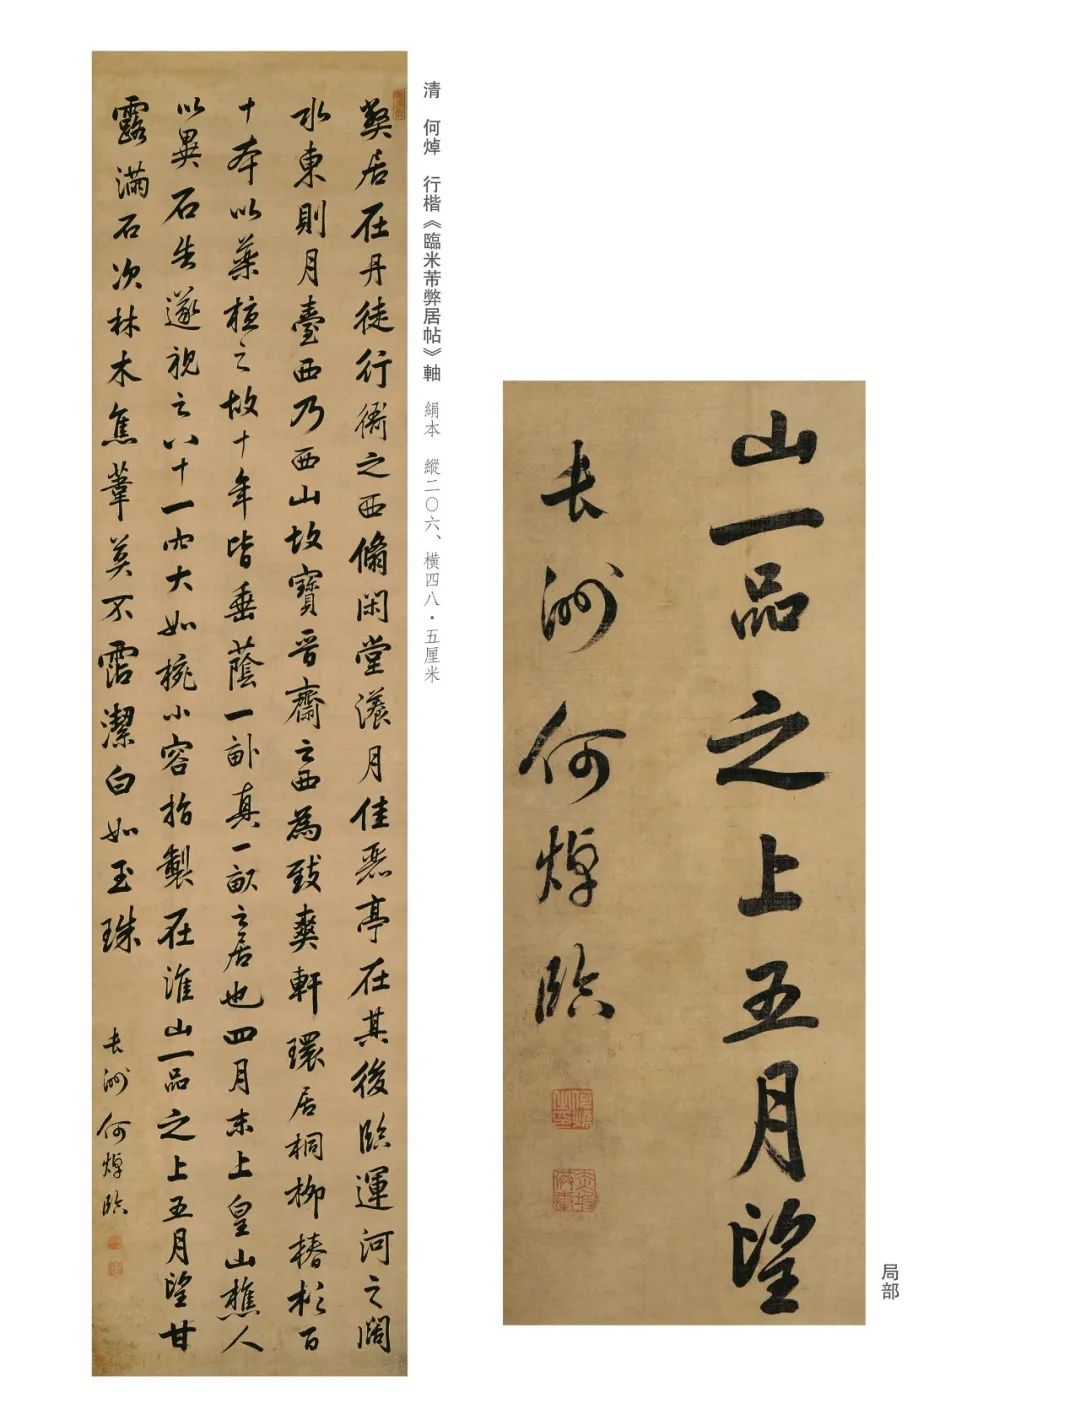 獘居在丹徒行衙之西脩閑堂漾月佳麗亭在其後臨運河之闊
水東則月臺西乃西山故寶晉齋之西為致爽軒環居桐柳椿杉百
十本以藥植之故十年皆垂蔭一畝真一畝之居也四月末上皇山樵人
以異石告遂視之八十一穴大如椀小容指製在淮山一品之上五月望甘
露滿石次林木焦葦莫不霑潔白如玉珠
長洲何焯臨
清 何焯 行楷《臨米芾弊居帖》軸 絹本 縱二〇六、橫四八·五厘米
山一品之上五月望
長洲何焯臨
局部